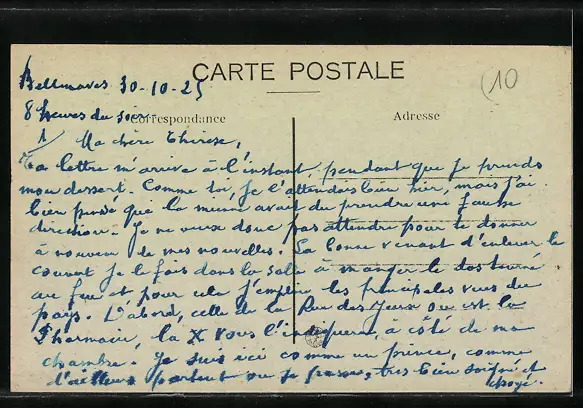 CARTE POSTALE
(10
Bellenaves 30-10-25
8 heures du soir
Correspondance
Adresse
1/ Ma chère Thérèse,
Ta lettre m'arrive à l'instant, pendant que je prends
mon dessert. Comme toi, je l'attendais bien hier, mais j'ai
bien pensé que la mienne avait du prendre une fausse
direction. Je ne veux donc pas attendre pour te donner
à nouveau de mes nouvelles. La bonne venant d'enlever le
couvert je le fais dans la salle à manger le dos tourné
au feu et pour cela j'emploie les principales vues du
pays. D'abord, celle de la Rue des Jeux où est la
Pharmacie, la X vous l'indiquera, à côté de ma
chambre. Je suis ici comme un prince, comme
d'ailleurs partout où je passe, très bien soigné et
choyé.